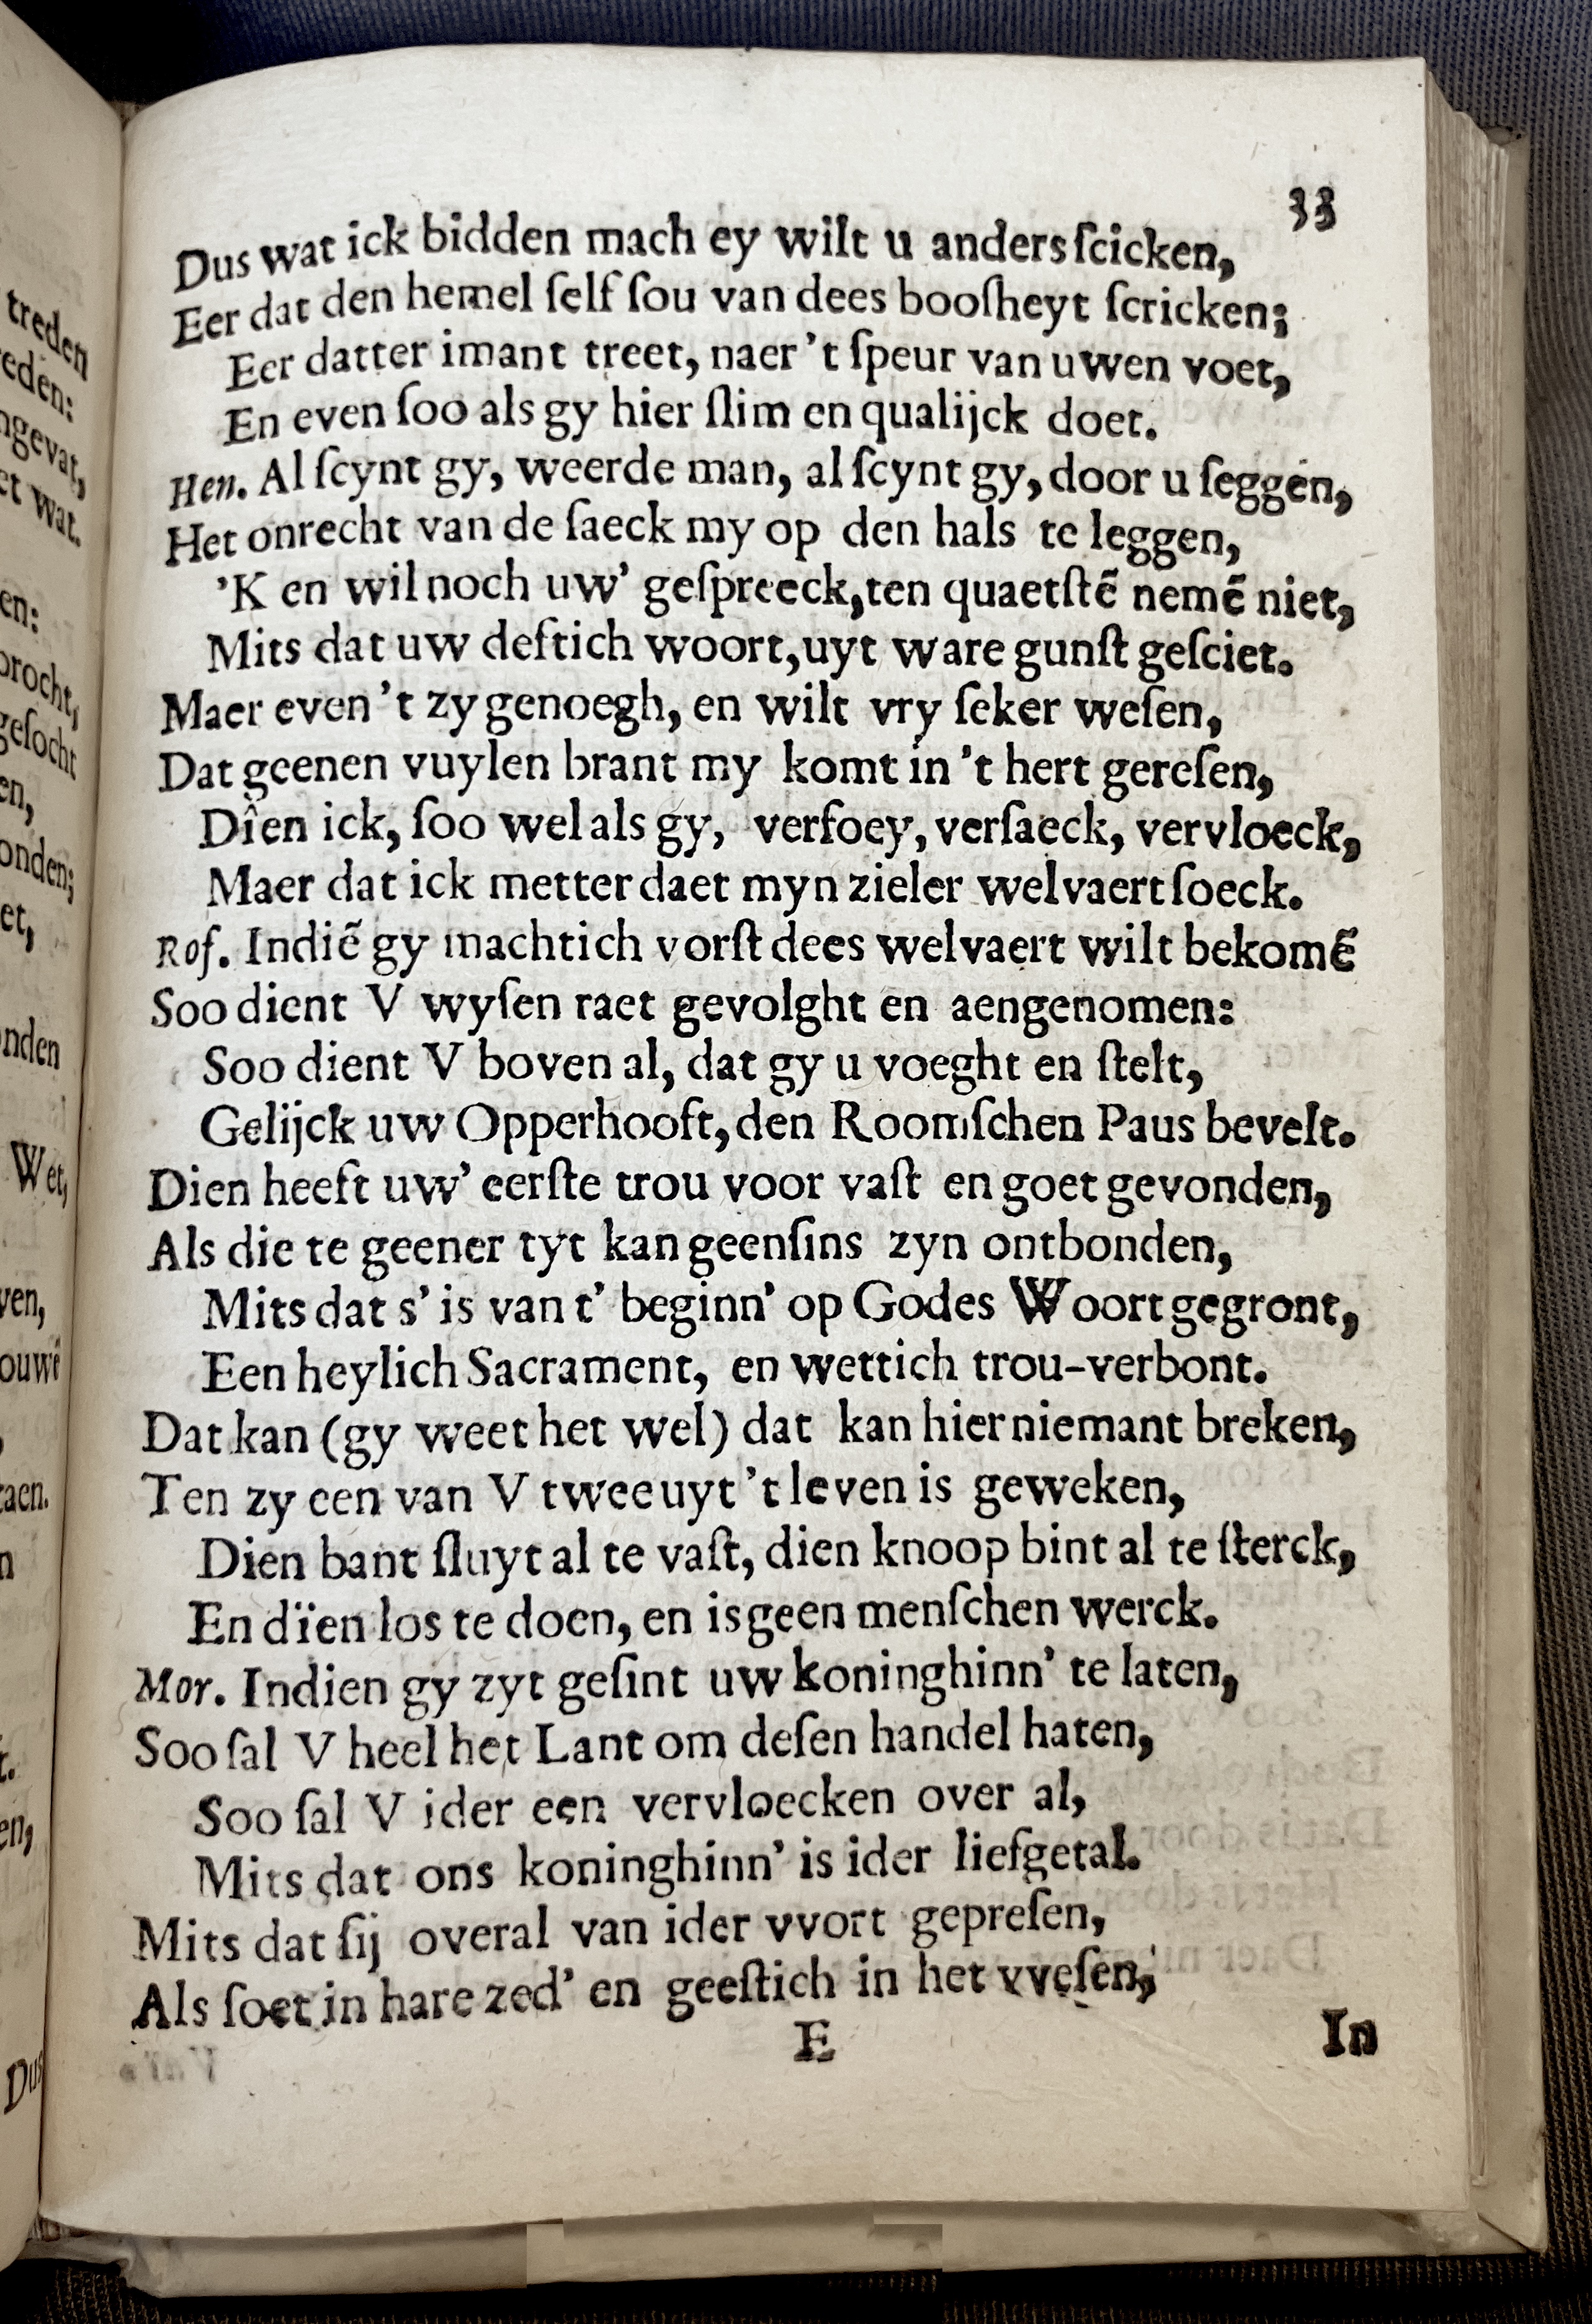 33
Dus wat ick bidden mach ey wilt u anders ſcicken,
Eer dat den hemel ſelf ſou van dees booſheyt ſcricken;
Eer datter imant treet, naer 't ſpeur van uwen voet,
En even ſoo als gy hier ſlim en qualijck doet.
Hen. Al ſcynt gy, weerde man, al ſcynt gy, door u ſeggen,
Het onrecht van de ſaeck my op den hals te leggen,
'K en wil noch uw' geſpreeck, ten quaetſtẽ nemẽ niet,
Mits dat uw deftich woort, uyt ware gunſt geſciet.
Maer even 't zy genoegh, en wilt vry ſeker weſen,
Dat geenen vuylen brant my komt in 't hert gereſen,
Dîen ick, ſoo wel als gy, verfoey, verſaeck, vervloeck,
Maer dat ick metter daet myn zieler welvaert ſoeck.
Rof. Indiẽ gy machtich vorſt dees welvaert wilt bekomẽ
Soo dient V wyſen raet gevolght en aengenomen:
Soo dient V boven al, dat gy u voeght en ſtelt,
Gelijck uw Opperhooft, den Roomſchen Paus bevelt.
Dien heeft uw' eerſte trou voor vaſt en goet gevonden,
Als die te geener tyt kan geenſins zyn ontbonden,
Mits dat s' is van t' beginn' op Godes Woort gegront,
Een heylich Sacrament, en wettich trou-verbont.
Dat kan (gy weet het wel) dat kan hier niemant breken,
Ten zy een van V twee uyt 't leven is geweken,
Dien bant ſluyt al te vaſt, dien knoop bint al te ſterck,
En dïen los te doen, en is geen menſchen werck.
Mor. Indien gy zyt geſint uw koninghinn' te laten,
Soo ſal V heel het Lant om deſen handel haten,
Soo ſal V ider een vervloecken over al,
Mits dat ons koninghinn' is ider liefgetal.
Mits dat ſij overal van ider vvort gepreſen,
Als ſoet in hare zed' en geeſtich in het vveſen,
E In
treden
eden:
ngevat,
et wat.
en:
brocht,
geſocht
en,
onden;
et,
onden
Wet,
ven,
ouwẽ
taen.
n
t.
en,
Dus